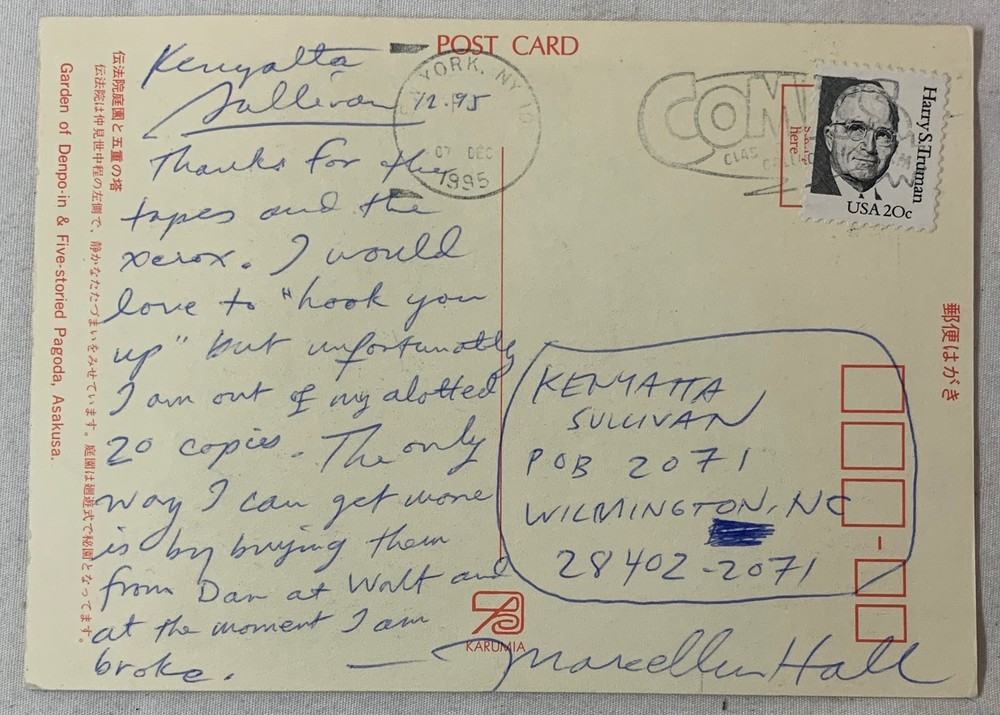 POST CARD
Kenyatta
Sullivan 12.95
Thanks for the
tapes and the
xerox. I would
love to "hook you
up" but unfortunatly
I am out of my alotted
20 copies. The only
way I can get more
is by buying them
from Dan at Wolt and
at the moment I am
broke. — Marcellus Hall
YORK, NY
07 DEC
1995
COMICS
CLASSIC COLLECTION
here
Harry S. Truman
USA 20c
KENYATTA
SULLIVAN
POB 2071
WILMINGTON, NC
28402-2071
郵便はがき
KARUMIA
伝法院庭園と五重の塔
伝法院は仲見世中程の左側で、静かなたたづまいをみせています。庭園は廻遊式で秘園となってます。
Garden of Denpo-in & Five-storied Pagoda, Asakusa.